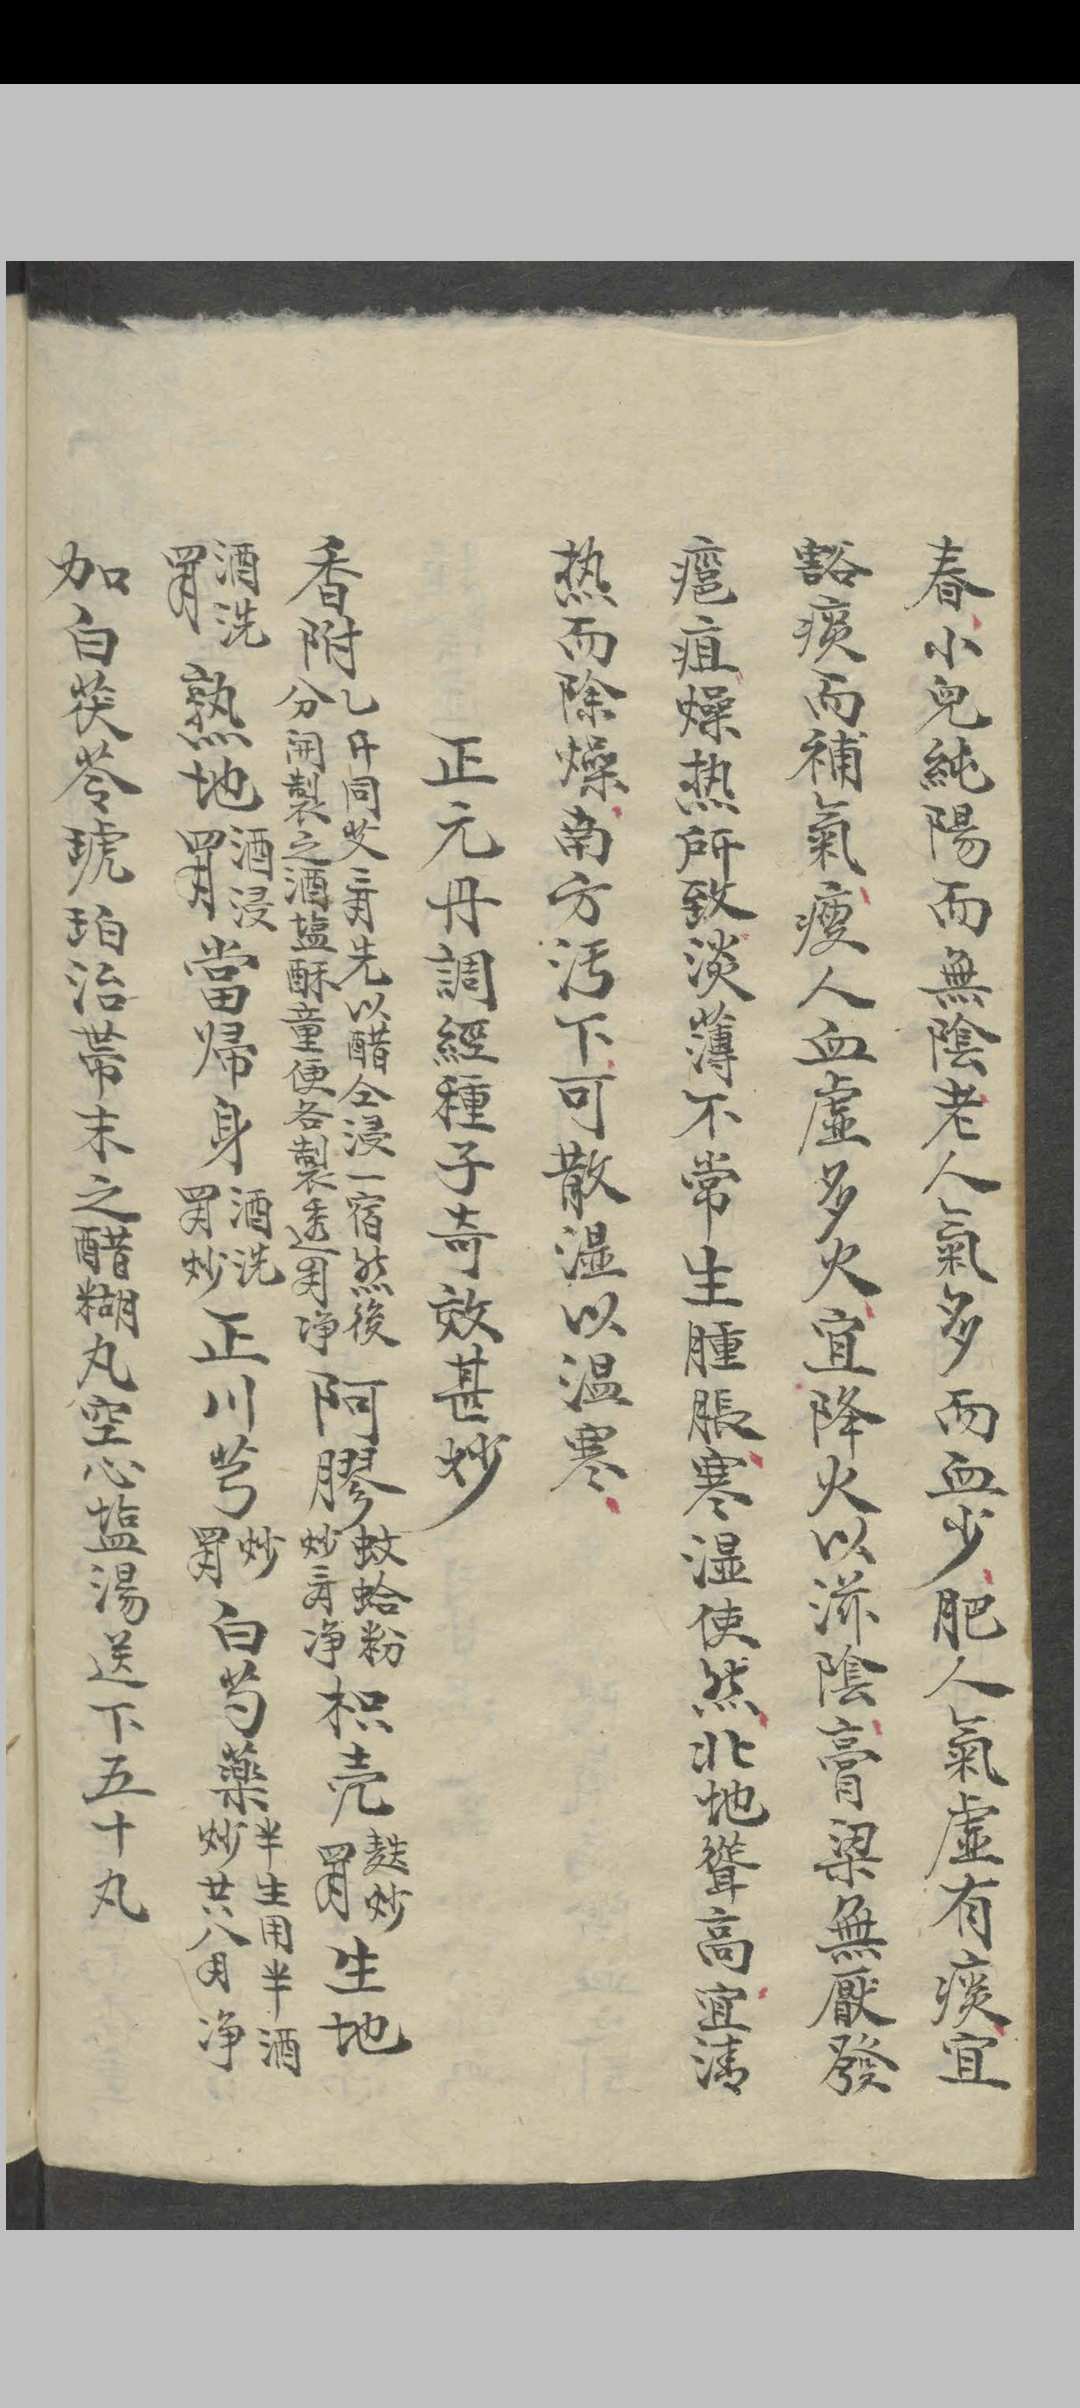 春小兒純陽而無陰老人氣多而血少肥人氣虛有痰宜
豁痰而補氣瘦人血虛多火宜降火以滋陰膏梁無厭發
瘡疽燥热所致淡薄不常生腫脹寒濕使然北地聳高宜清
热而除燥南方污下可散濕以温寒
正元丹調經種子奇效甚妙
香附乙斤同艾三両先以醋仝浸一宿然後
分開製之酒塩酥童便各製透用净阿膠蚊蛤粉
炒二両净枳壳麩炒
四両生地
酒洗
四両熟地酒浸
四両當歸身酒洗
四両炒正川芎炒
四両白芍藥半生用半酒
炒共八両净
加白茯苓琥珀治帯末之醋糊丸空心塩湯送下五十丸